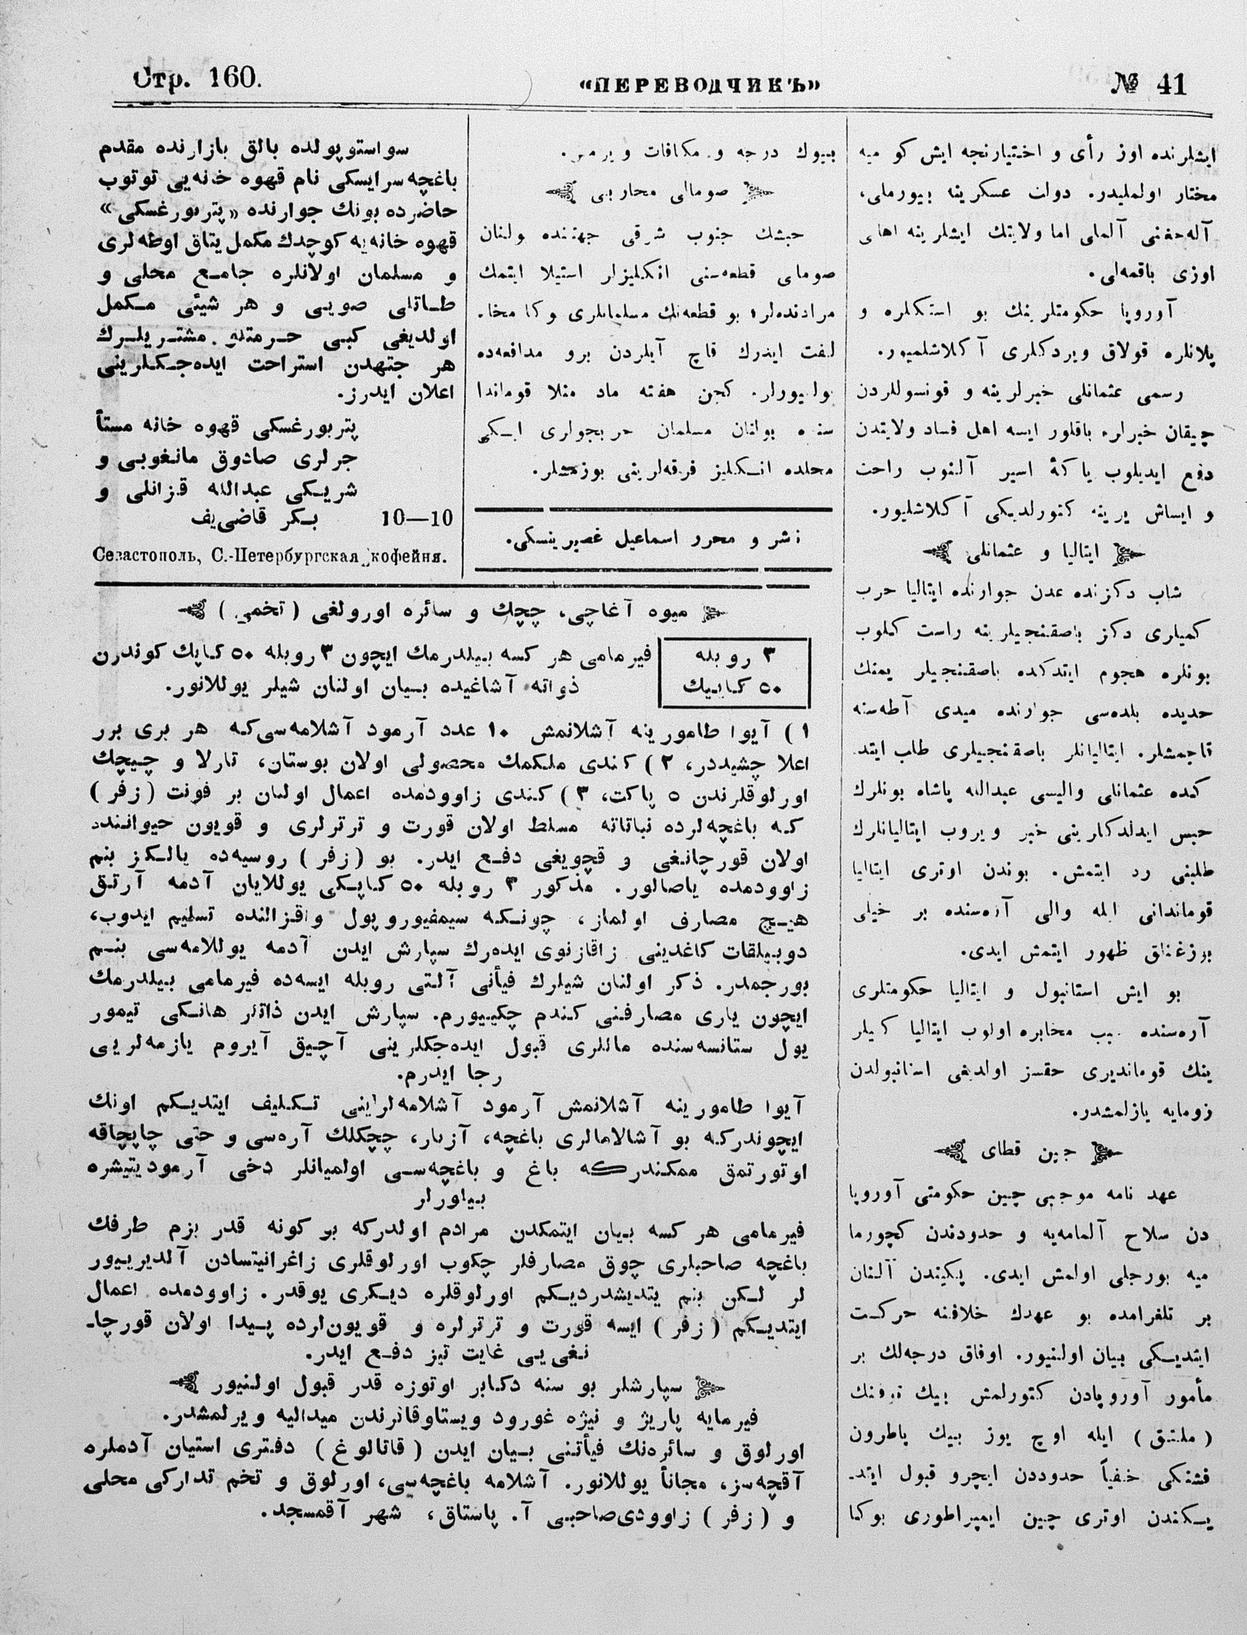 Стр. 160.
«ПЕРЕВОДЧИКЪ»
№ 41
ايشلرنده اوز رأى و اختيارنجه ايش كو ميه
مختار اولمليدر. دولت عسكرينه بيورملى،
آله‌جغنى آلملى اما ولايتك ايشلرينه اهالى
اوزى باقمه‌لى.
آوروپا حكومتلرينك بو استكلره و
پلانلره قولاق ويردكلرى آكلاشلميور.
رسمى عثمانلى خبرلرينه و قونسوللردن
چيقان خبرلره باقلور ايسه اهل فساد ولايتدن
دفع ايديلوب ياكه اسير آلنوب راحت
و ايساش يرينه كتورلديكى آكلاشليور.
ايتاليا و عثمانلى
شاب دكزنده عدن جوارنده ايتاليا حرب
كميلرى دكز باصقنجيلرينه راست كلوب
بونلره هجوم ايتدكده باصقنجيلر يمنك
حديده بلده‌سى جوارنده ميدى آطه‌سنه
قاچمشلر. ايتاليانلر باصقنجيلرى طلب ايتد
كده عثمانلى واليسى عبدالله پاشاه بونلرك
حبس ايدلدكلرينى خبر ويروب ايتاليانلرك
طلبنى رد ايتمش. بوندن اوترى ايتاليا
قوماندانى ايله والى آره‌سنده بر خيلى
بوزغنلق ظهور ايتمش ايدى.
بو ايش استانبول و ايتاليا حكومتلرى
آره‌سنده سبب مخابره اولوب ايتاليا كميلر
ينك قومانديرى حقسز اولديغى استانبولدن
رومايه يازلمشدر.
چين قطاى
عهد نامه موجبى چين حكومتى آوروپا
دن سلاح آلمامه‌يه و حدودندن كچورما
ميه بورجلى اولمش ايدى. پكيندن آلنان
بر تلغرامده بو عهدك خلافنه حركت
ايتديكى بيان اولنيور. اوفاق درجه‌لك بر
مأمور آوروپادن كتورلمش بيك توفنك
(ملتق) ايله اوچ يوز بيك پاطرون
فشنكى خفياً حدوددن ايچرو قبول ايتد
يكندن اوترى چين ايمپراطورى بوكا
بيوك درجه و مكافات ويرمش.
صومالى محاربى
حبشك جنوب شرقى جهتنده ولنان
صومالى قطعه‌سنى انكليزلر استيلا ايتمك
مرادنده‌لر؛ بو قطعه‌نك مسلمانلرى وكا مخا.
لفت ايدرك قاچ آيلردن برو مدافعه‌ده
بوليورلر. كچن هفته ماد ملا قوماندا
سنده بولنان مسلمان حربجولرى ايكى
محلده انكليز فرقه‌لرينى بوزمشلر.
ناشر و محرر اسماعيل غصپرينسكى.
سواستوپولده بالق بازارنده مقدم
باغچه‌سرايسكى نام قهوه خانه‌يى توتوب
حاضرده بونك جوارنده «پتربورغسكى»
قهوه خانه‌يه كوچدك مكمل يتاق اوطه‌لرى
و مسلمان اولانلره جامع محلى و
طاتلى صويى و هر شيئى مكمل
اولديغى كبى حرمتلو مشتريلرك
هر جهتدن استراحت ايده‌جكلرينى
اعلان ايدرز.
پتربورغسكى قهوه خانه مستأ
جرلرى صادوق مانغوبى و
شريكى عبدالله قزانلى و
بكر قاضى‌يف 10—10
Севастополь, С.-Петербургская кофейня.
ميوه آغاچى، چچك و سائره اورولغى (تخمى)
٣ روبله
٥٠ كاپيك
فيرمامى هر كسه بيلدرمك ايچون ٣ روبله ٥٠ كاپك كوندرن
ذواته آشاغيده بيان اولنان شيلر يوللانور.
١) آيوا طامورينه آشلانمش ١٠ عدد آرمود آشلامه‌سى‌كه هر برى برر
اعلا چشيددر، ٢) كندى ملكمك محصولى اولان بوستان، تارلا و چيچك
اورلوقلرندن ٥ پاكت، ٣) كندى زاوودمده اعمال اولنان بر فونت (زفر)
كه باغچه‌لرده نباتاته مسلط اولان قورت و ترترلرى و قويون حيوانند‌ه
اولان قورچانغى و قچويغى دفع ايدر. بو (زفر) روسيه‌ده يالكز بنم
زاوودمده ياصالور. مذكور ٣ روبله ٥٠ كاپكى يوللايان آدمه آرتق
هيچ مصارف اولماز، چونكه سيمفيروپول واقزالنده تسليم ايدوب،
دوبيلقات كاغدينى زاقازنوى ايده‌رك سپارش ايدن آدمه يوللامه‌سى بنم
بورجمدر. ذكر اولنان شيلرك فيأنى آلتى روبله ايسه‌ده فيرمامى بيلدرمك
ايچون يارى مصارفنى كندم چكييورم. سپارش ايدن ذاتلر هانكى تيمور
يول ستانسه‌سنده ماللرى قبول ايده‌جكلرينى آچيق آيروم يازمه‌لرينى
رجا ايدرم.
آيوا طامورينه آشلانمش آرمود آشلامه‌لرينى تكليف ايتديكم اونك
ايچوندركه بو آشالامالرى باغچه، آزبار، چچكلك آره‌سى و حتى چاپچاقه
اوتورتمق ممكندركه باغ و باغچه‌سى اولميانلر دخى آرموديتيشره
بيلورلر
فيرمامى هر كسه بيان ايتمكدن مرادم اولدركه بو كونه قدر بزم طرفك
باغچه صاحبلرى چوق مصارفلر چكوب اورلوقلرى زاغرانيتسادن آلديرييور
لر لكن بنم يتديشدرديكم اورلوقلره ديكرى يوقدر. زاوودمده اعمال
ايتديكم (زفر) ايسه قورت و ترترلره و قويون‌لرده پيدا اولان قورچا.
نغى‌يى غايت تيز دفع ايدر.
سپارشلر بو سنه دكابر اوتوزه قدر قبول اولنيور
فيرمايه پاريژ و نيژه غورود ويستاوقالرندن ميداليه ويرلمشدر.
اورلوق و سائره‌نك فيأتنى بيان ايدن (قاتالوغ) دفترى استيان آدملره
آقچه‌سز، مجاناً يوللانور. آشلامه باغچه‌سى، اورلوق و تخم تداركى محلى
و (زفر) زاوودى‌صاحبى آ. پاستاق، شهر آقمسجد.